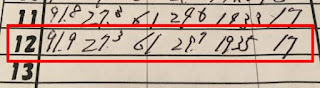 11 91.8 27.8 61 29.6 1933 17
12 91.9 27.3 61 29.7 1935 17
13